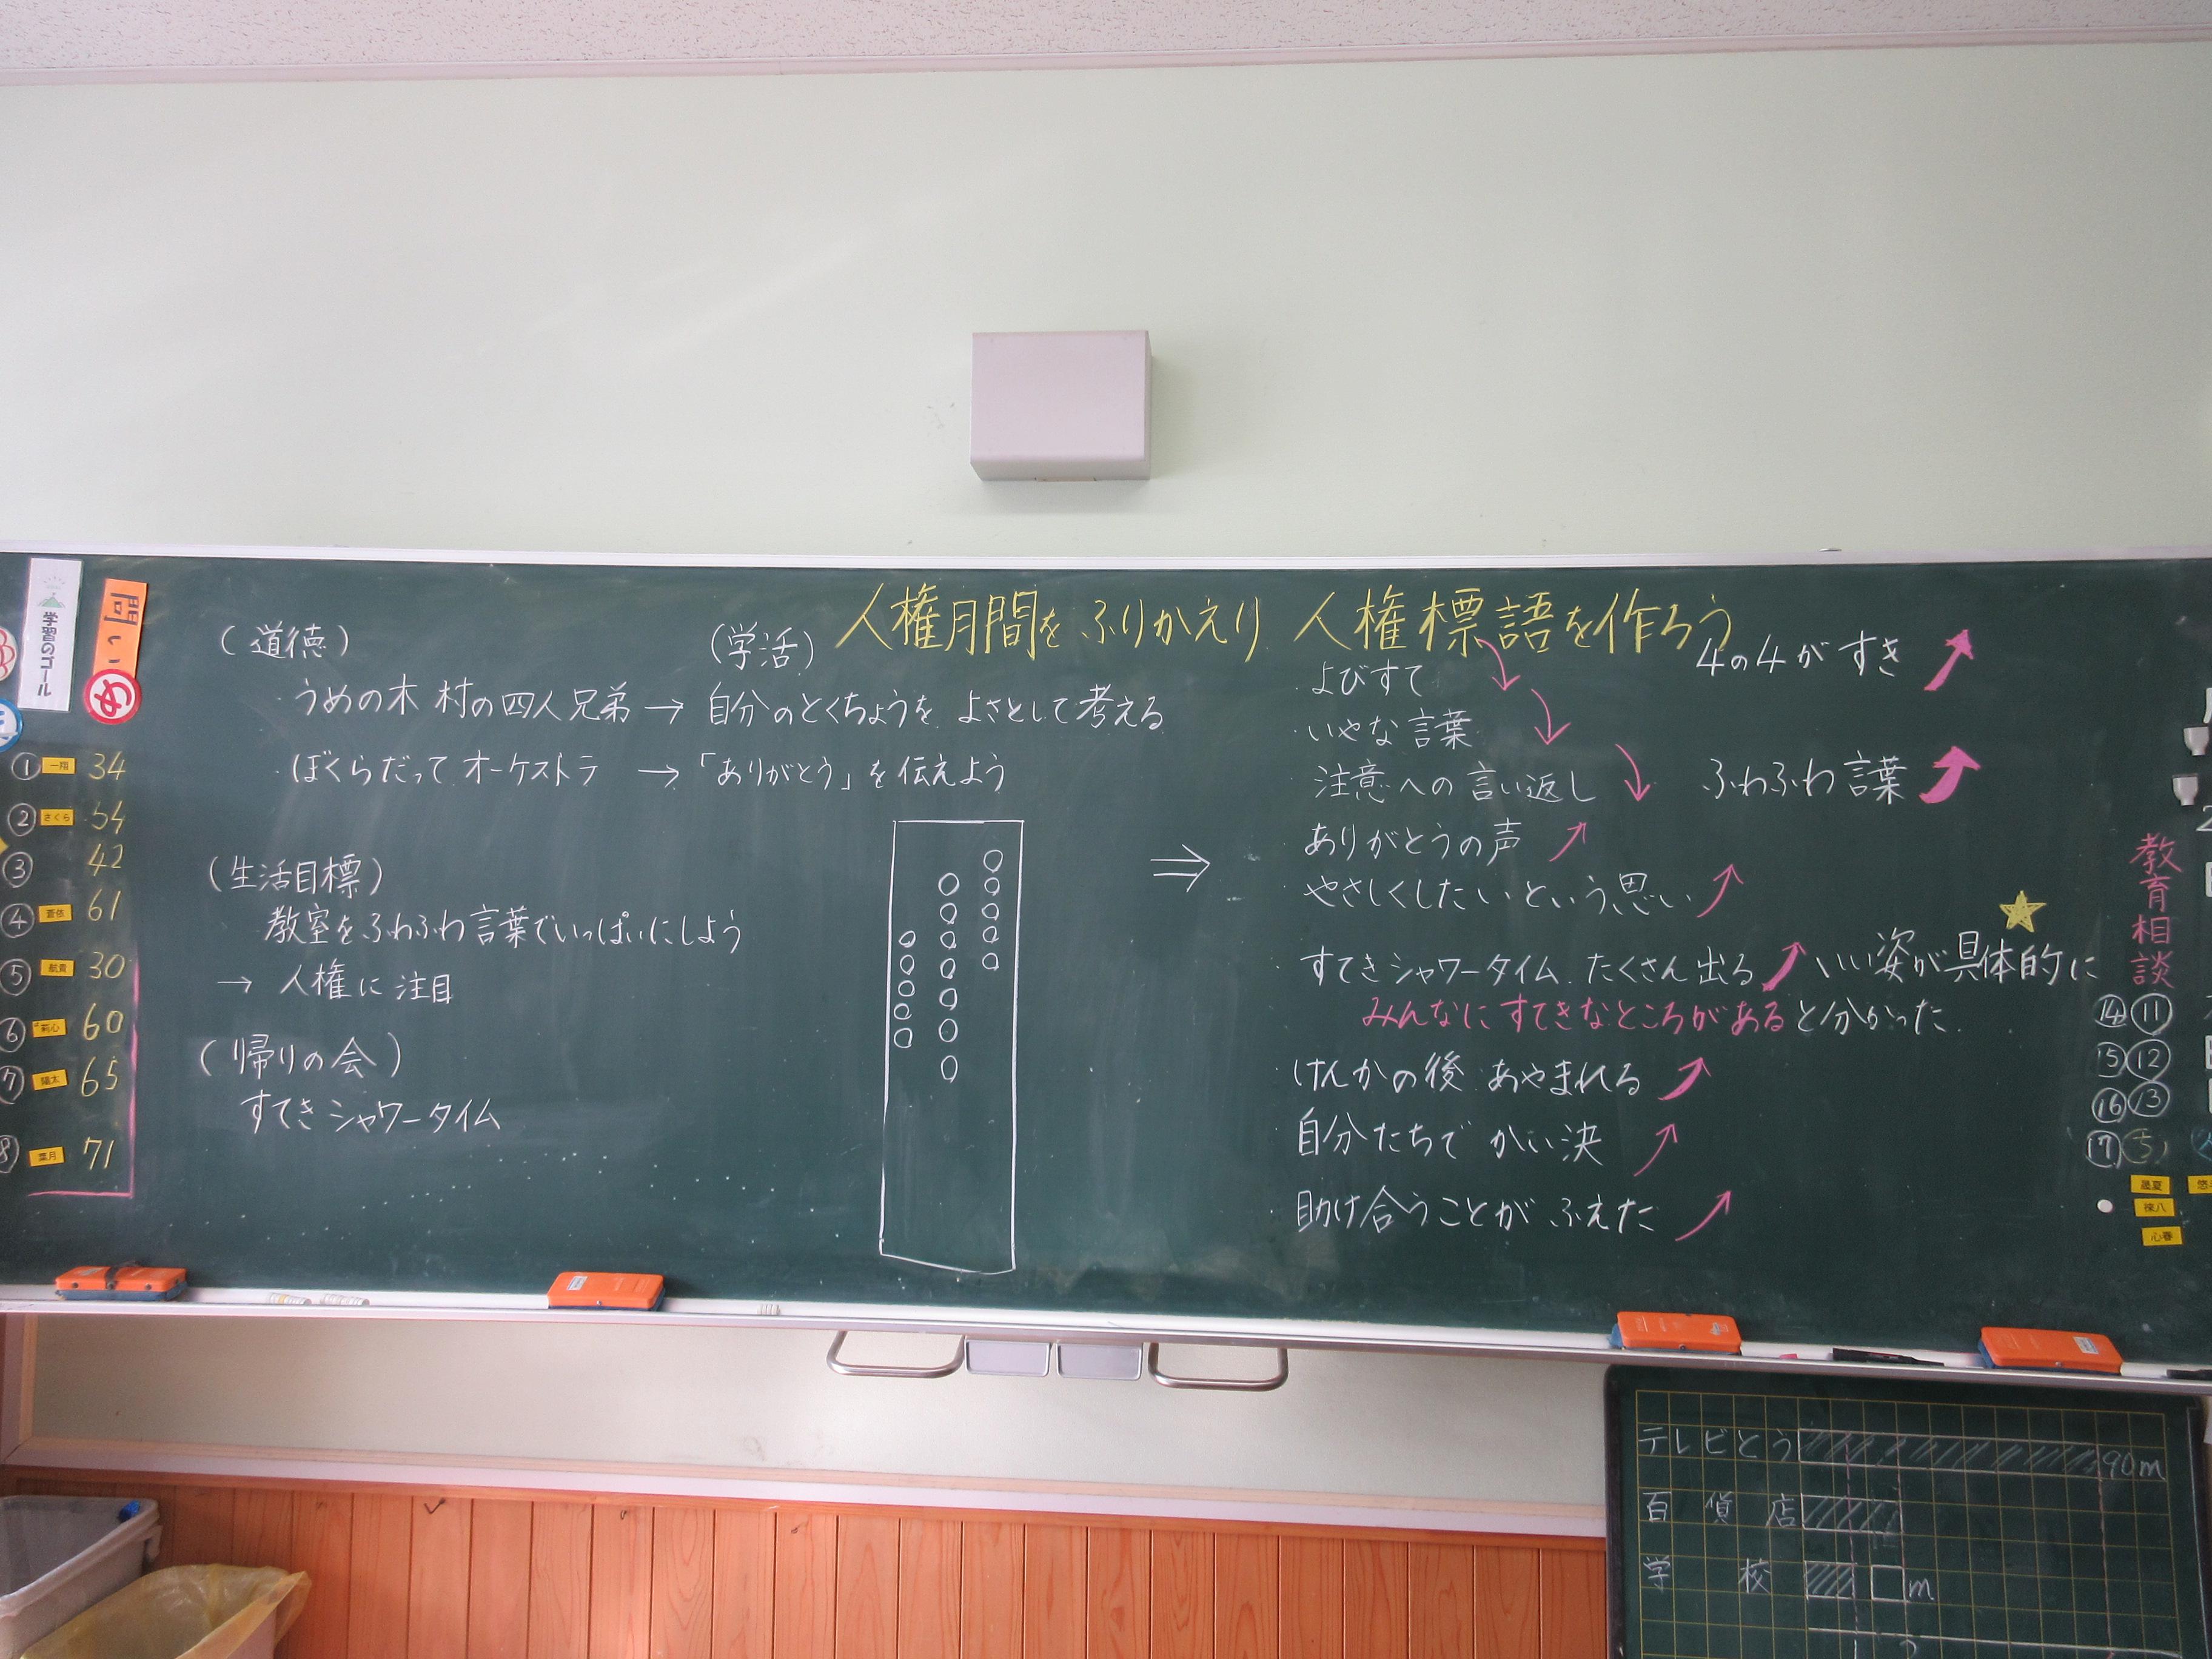 人権月間をふりかえり 人権標語を作ろう
学習のゴール
問い
め
① 一翔 34
② さくら 54
③ 42
④ 蒼依 61
⑤ 30
⑥ 60
⑦ 陽太 65
⑧ 葉月 71
(道徳)
(学活)
・うめの木村の四人兄弟 → 自分のとくちょうを よさとして考える
・ぼくらだって オーケストラ → 「ありがとう」を伝えよう
(生活目標)
教室をふわふわ言葉でいっぱいにしよう
→ 人権に注目
(帰りの会)
すてきシャワータイム
⇒
・よびすて
・いやな言葉
・注意への言い返し
・ありがとうの声
・やさしくしたいという思い
・すてきシャワータイム.たくさん出る いい姿が具体的に
みんなにすてきなところがあると分かった.
・けんかの後 あやまれる
・自分たちで かい決
・助け合うことが ふえた
・4の4がすき
・ふわふわ言葉
教育相談
⑭⑪
⑮⑫
⑯⑬
⑰
心春
テレビとう 90m
百貨店
学校 □m